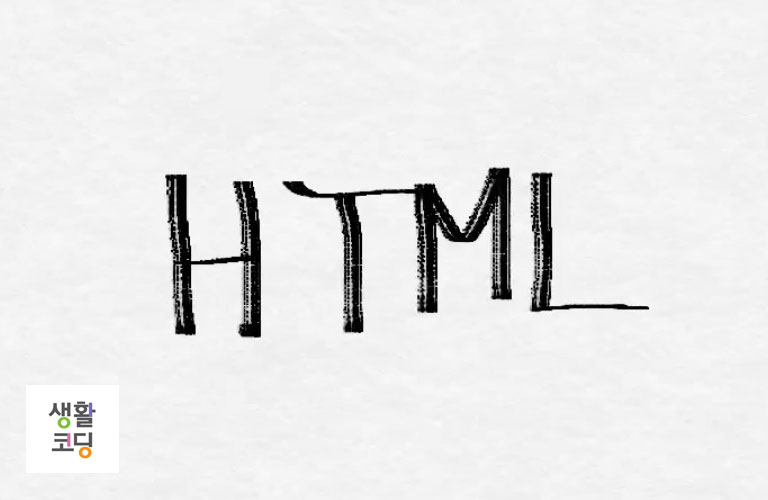 HTML
생활
코딩